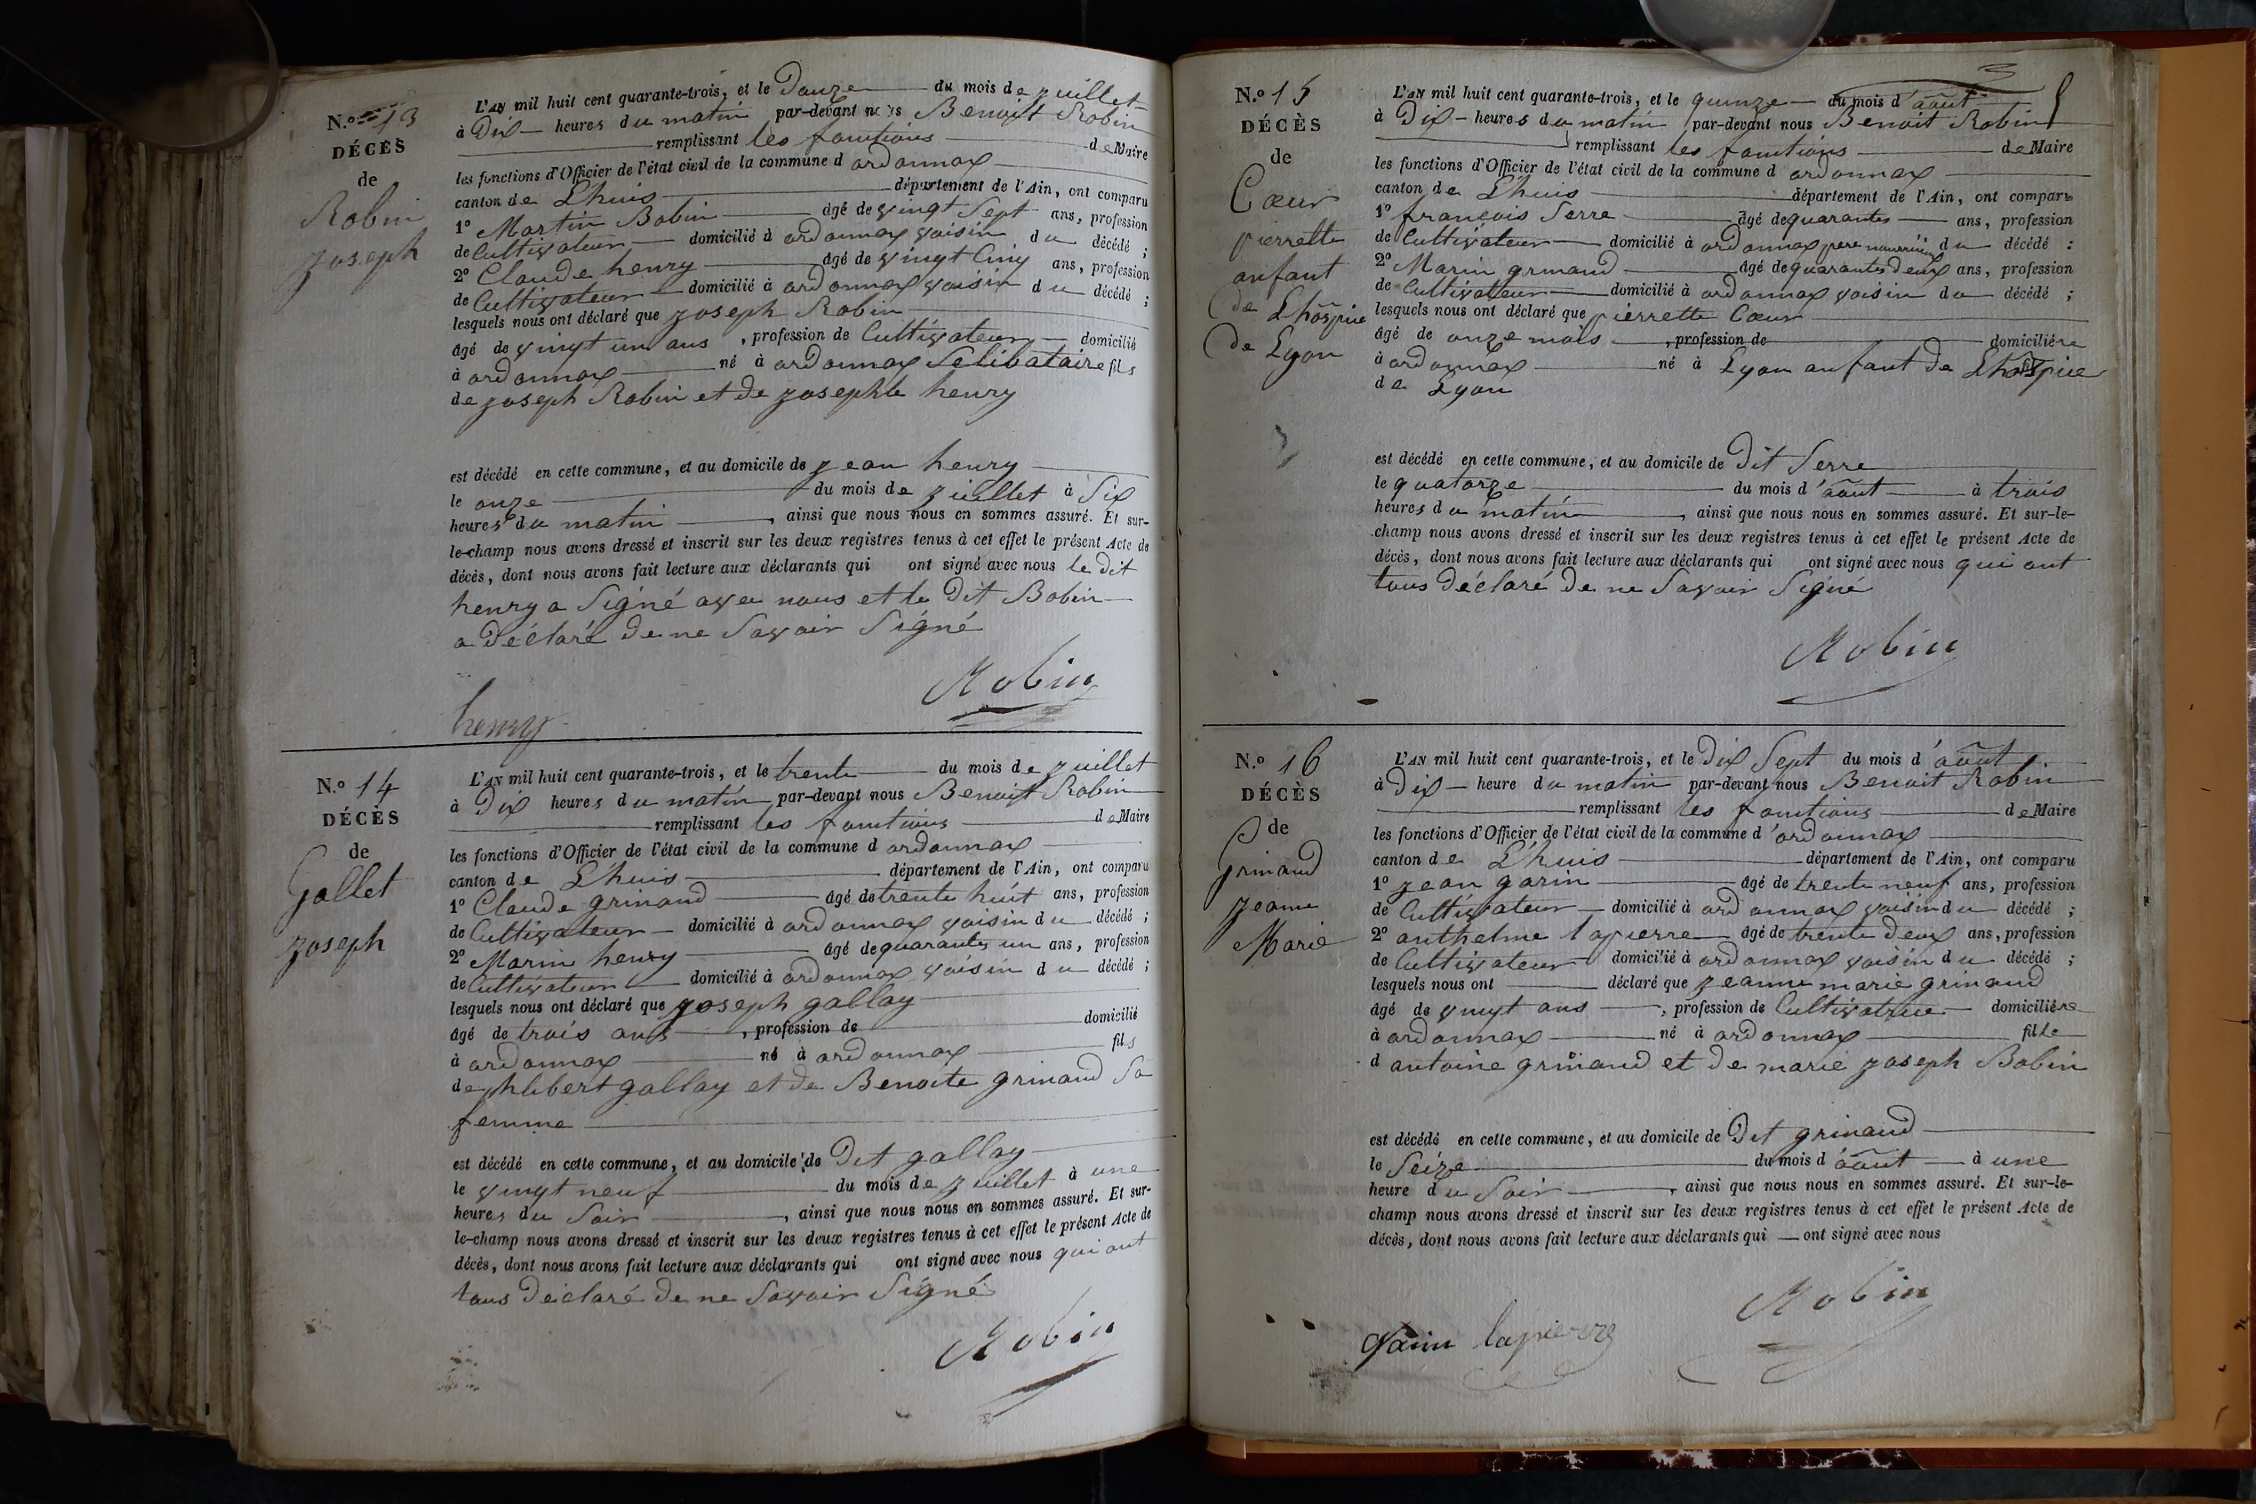 N.o 13
DÉCÈS
de
Robin
joseph
L'AN mil huit cent quarante-trois, et le Douze du mois de juillet
à Dix heures du matin par-devant nous Benoit Robin
remplissant les fonctions de Maire
les fonctions d'Officier de l'état civil de la commune d ordonnax
canton de Lhuis département de l'Ain, ont comparu
1o Martin Bobin âgé de vingt Sept ans, profession
de Cultivateur domicilié à ordonnax voisin du décédé ;
2o Claude henry âgé de vingt Cinq ans, profession
de Cultivateur domicilié à ordonnax voisin du décédé ;
lesquels nous ont déclaré que joseph Robin
âgé de vingt un ans , profession de Cultivateur domicilié
à ordonnax né à ordonnax Selibataire fils
de joseph Robin et de josephte henry
est décédé en cette commune, et au domicile de jean henry
le onze du mois de juillet à Six
heures du matin , ainsi que nous nous en sommes assuré. Et sur-
le-champ nous avons dressé et inscrit sur les deux registres tenus à cet effet le présent Acte de
décès, dont nous avons fait lecture aux déclarants qui ont signé avec nous le dit
henry a Signé avec nous et le Dit Bobin
a Déclaré de ne Savoir Signé
Robin
henry
N.o 14
DÉCÈS
de
Gallet
joseph
L'AN mil huit cent quarante-trois, et le trente du mois de juillet
à Dix heures du matin par-devant nous Benoit Robin
remplissant les fonctions de Maire
les fonctions d'Officier de l'état civil de la commune d ordonnax
canton de Lhuis département de l'Ain, ont comparu
1o Claude grinand âgé de trente huit ans, profession
de Cultivateur domicilié à ordonnax voisin du décédé ;
2o Marin henry âgé de quarante un ans, profession
de Cultivateur domicilié à ordonnax voisin du décédé ;
lesquels nous ont déclaré que joseph gallay
âgé de trois ans , profession de domicilié
à ordonnax né à ordonnax fils
de phlibert gallay et de Benoite grinand Sa
femme
est décédé en cette commune, et au domicile de Dit gallay
le vingt neuf du mois de juillet à une
heures du Soir , ainsi que nous nous en sommes assuré. Et sur-
le-champ nous avons dressé et inscrit sur les deux registres tenus à cet effet le présent Acte de
décès, dont nous avons fait lecture aux déclarants qui ont signé avec nous qui ont
tous Déclaré de ne Savoir Signé
Robin
N.o 15
DÉCÈS
de
Cœur
pierrette
anfant
de Lhospice
de Lyon
L'AN mil huit cent quarante-trois, et le quinze du mois d'août
à Dix heures du matin par-devant nous Benoit Robin
remplissant les fonctions de Maire
les fonctions d'Officier de l'état civil de la commune d ordonnax
canton de Lhuis département de l'Ain, ont comparu
1o françois Serre âgé de quarante ans, profession
de Cultivateur domicilié à ordonnax pere nourricié du décédé ;
2o Marin grinand âgé de quarante deux ans, profession
de Cultivateur domicilié à ordonnax voisin du décédé ;
lesquels nous ont déclaré que pierrette Cœur
âgé de onze mois , profession de domiciliée
à ordonnax né à Lyon anfant de Lhospice
de Lyon
est décédé en cette commune, et au domicile de Dit Serre
le quatorze du mois d'août à trois
heures du matin , ainsi que nous nous en sommes assuré. Et sur-le-
champ nous avons dressé et inscrit sur les deux registres tenus à cet effet le présent Acte de
décès, dont nous avons fait lecture aux déclarants qui ont signé avec nous qui ont
tous Déclaré de ne Savoir Signé
Robin
N.o 16
DÉCÈS
de
Grinand
jeanne
Marie
L'AN mil huit cent quarante-trois, et le Dix Sept du mois d'août
à Dix heure du matin par-devant nous Benoit Robin
remplissant les fonctions de Maire
les fonctions d'Officier de l'état civil de la commune d'ordonnax
canton de Lhuis département de l'Ain, ont comparu
1o jean garin âgé de trente neuf ans, profession
de Cultivateur domicilié à ordonnax voisin du décédé ;
2o anthelme lapierre âgé de trente deux ans, profession
de Cultivateur domicilié à ordonnax voisin du décédé ;
lesquels nous ont déclaré que jeanne marie grinand
âgé de vingt ans , profession de Cultivatrice domiciliée
à ordonnax né à ordonnax fille
d antoine grinand et de marie joseph Bobin
est décédé en cette commune, et au domicile de Dit grinand
le Seize du mois d'août à une
heure du Soir , ainsi que nous nous en sommes assuré. Et sur-le-
champ nous avons dressé et inscrit sur les deux registres tenus à cet effet le présent Acte de
décès, dont nous avons fait lecture aux déclarants qui ont signé avec nous
Robin
garin lapierre